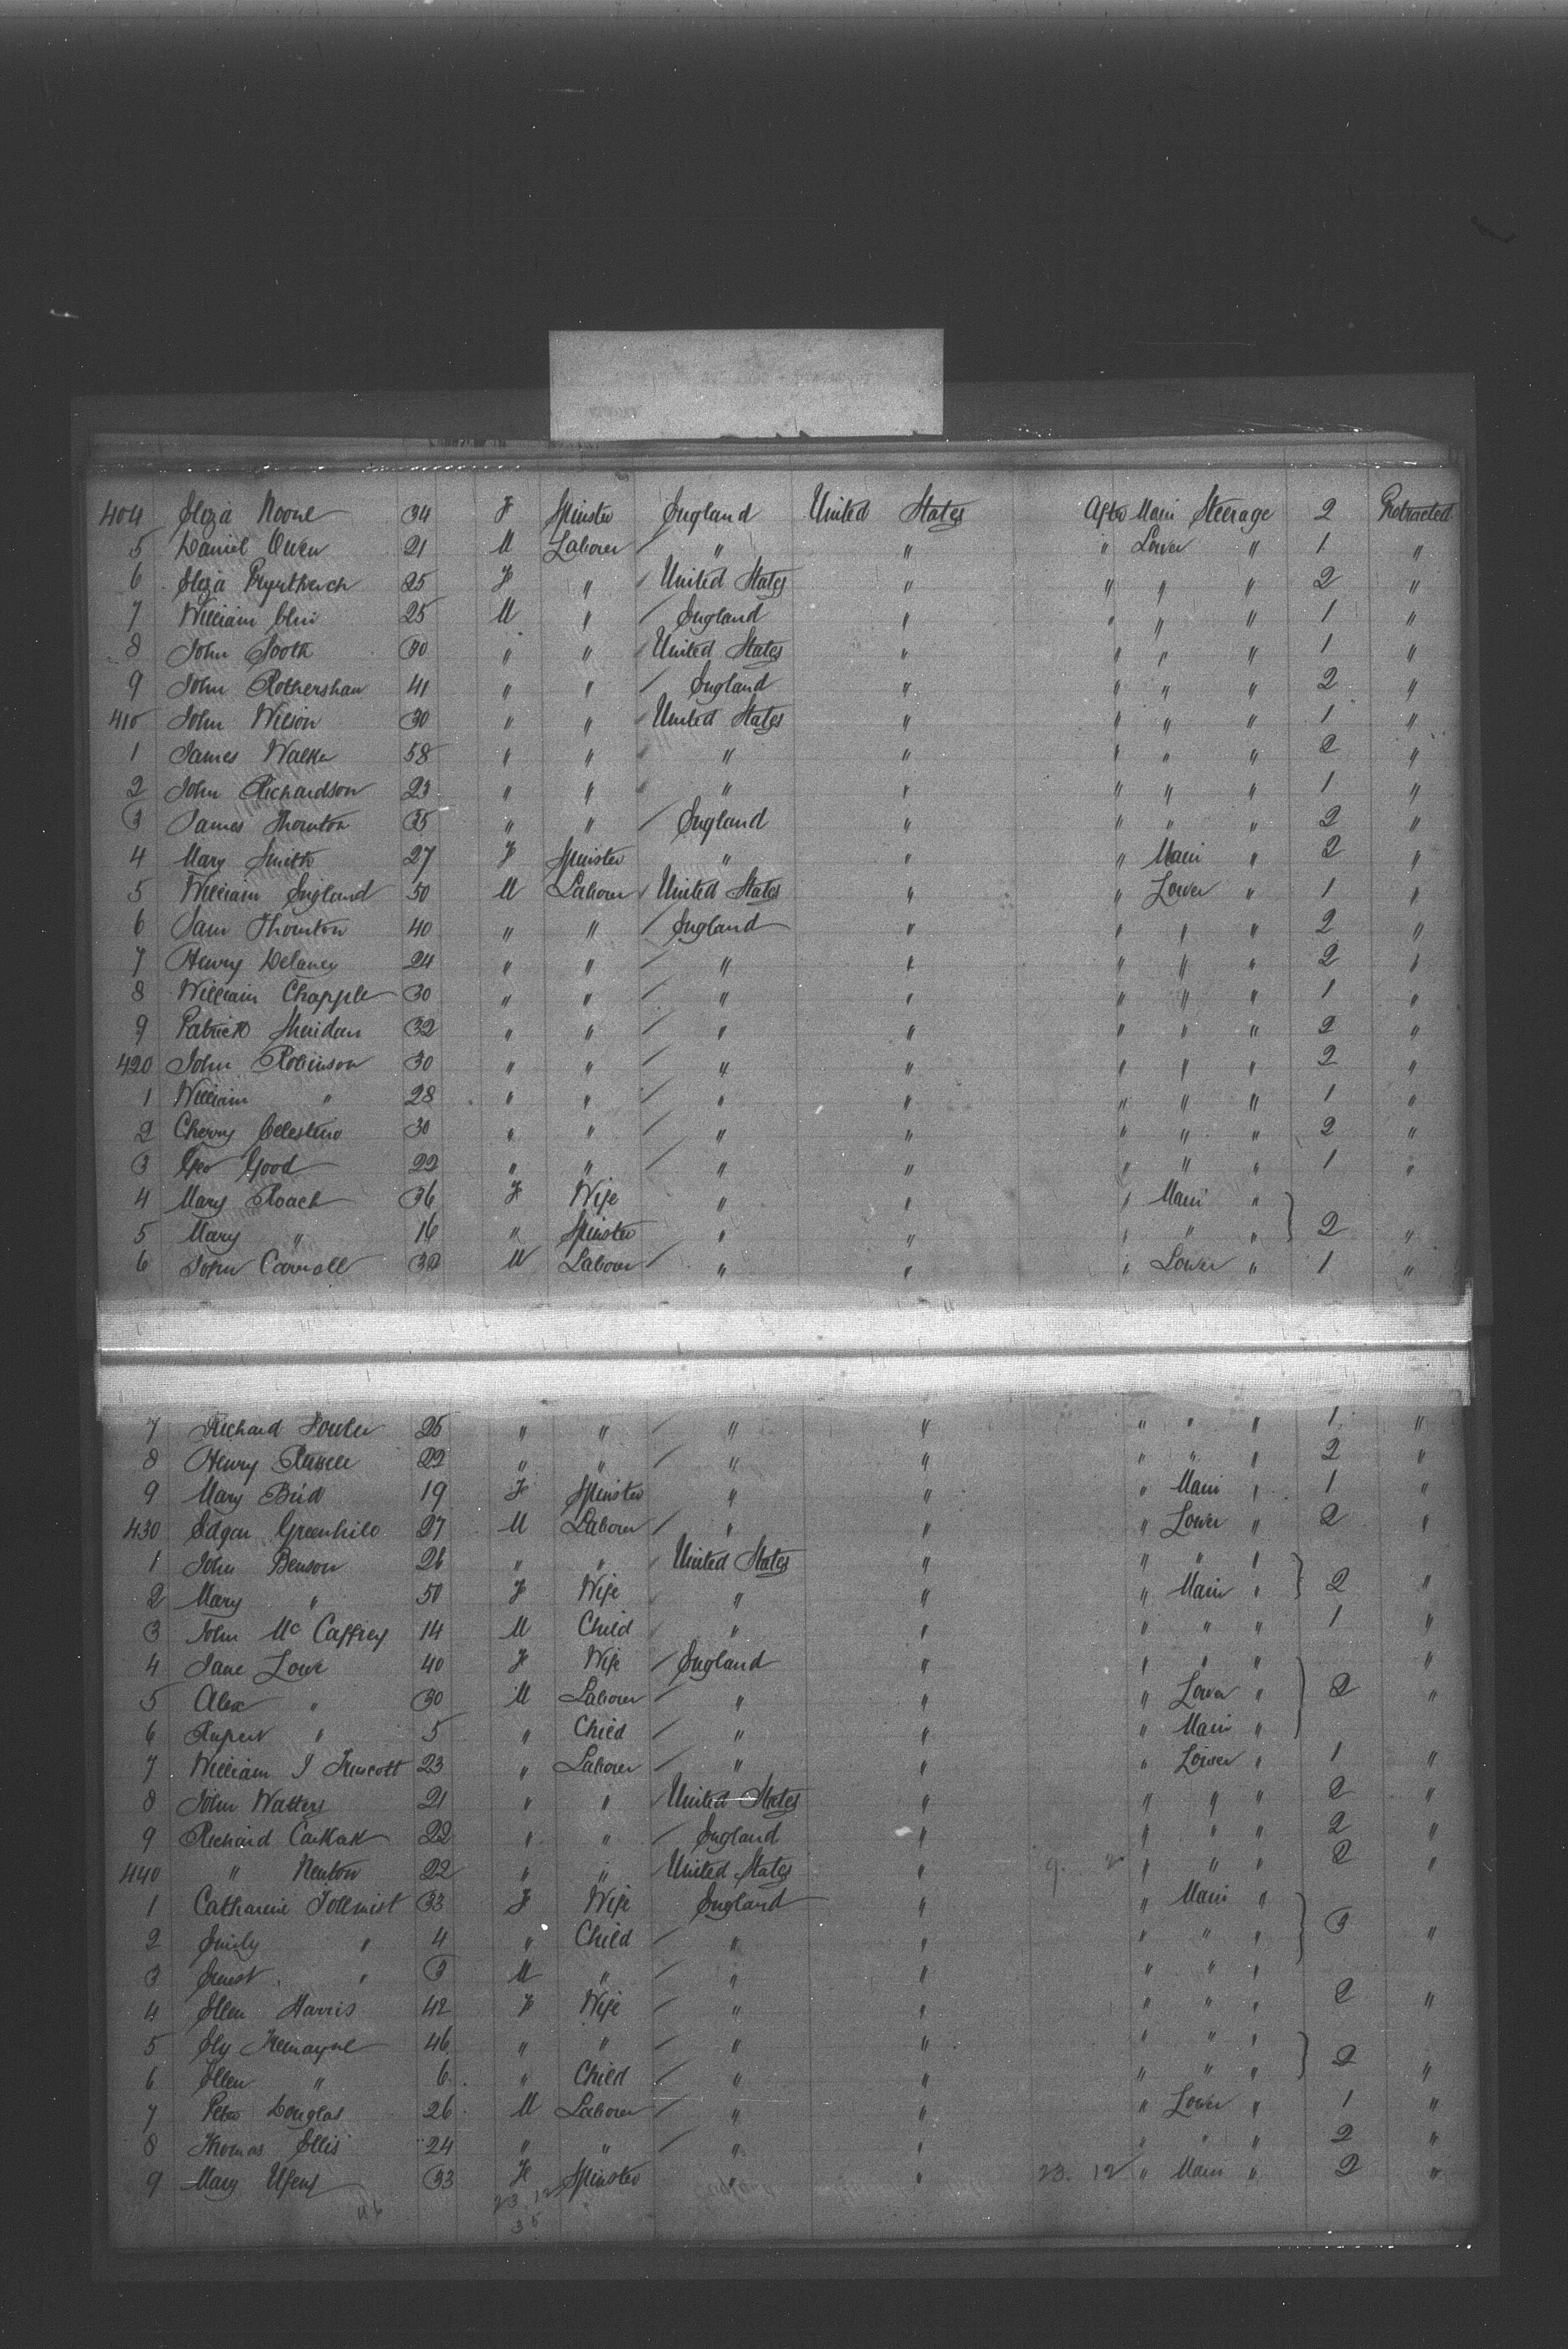 404 Eliza Noone 34 F Spinster England United States After Main Steerage 2 Protracted
5 Daniel Owen 21 M Laborer " " " Lower " 1 "
6 Eliza 25 F " / United States " " " " 2 "
7 William 25 M " / England " " " " 1 "
8 John Booth 30 " " / United States " " " " 1 "
9 John Rothershaw 41 " " / England " " " " 2 "
410 John Wilson 30 " " / United States " " " " 1 "
1 James Walker 58 " " / " " " " " 2 "
2 John Richardson 23 " " / " " " " " 1 "
3 James Thornton 35 " " / England " " " " 2 "
4 Mary Smith 27 F Spinster " " " Main " 2 "
5 William England 50 M Laborer / United States " " Lower " 1 "
6 Sam Thornton 40 " " / England " " " " 2 "
7 Henry Delaney 24 " " / " " " " " 2 "
8 William Chapple 30 " " / " " " " " 1 "
9 Patrick Sheridan 32 " " / " " " " " 2 "
420 John Robinson 30 " " / " " " " " 2 "
1 William " 28 " " / " " " " " 1 "
2 Cherry Celestino 30 " " / " " " " " 2 "
3 Geo Good 22 " " / " " " " " 1 "
4 Mary Roach 36 F Wife " " " Main "
5 Mary " 16 " Spinster " " " " " } 2 "
6 John Carroll 32 M Laborer / " " " Lower " 1 "
7 Richard Fowler 25 " " / " " " " " 1 "
8 Henry Russell 22 " " / " " " " " 2 "
9 Mary Bird 19 F Spinster " " " Main " 1 "
430 Edgar Greenhill 27 M Laborer / " " " Lower " 2 "
1 John Benson 26 " " / United States " " " "
2 Mary " 50 F Wife " " " Main " } 2 "
3 John McCaffrey 14 M Child / " " " " " 1 "
4 Jane Lowe 40 F Wife / England " " " " "
5 Alex " 30 M Laborer / " " " Lower " } 2 "
6 Rupert " 5 " Child / " " " Main "
7 William J Truscott 23 " Laborer / " " " Lower " 1 "
8 John Watters 21 " " United States " " " " 2 "
9 Richard 22 " " / England " " " " 2 "
440 " Newton 22 " " / United States " 9. 2 " " " 2 "
1 Catharine 33 F Wife England " " Main "
2 Emily " 4 " Child / " " " " " } 3 "
3 Ernest " 3 M " / " " " " "
4 Ellen Harris 42 F Wife / " " " " " 2 "
5 Ely Tremayne 46 " " / " " " " "
6 Ellen " 6 " Child / " " " " " } 2 "
7 Peter Douglas 26 M Laborer / " " " Lower " 1 "
8 Thomas Ellis 24 " " / " " " " " 2 "
9 Mary 33 F Spinster " " 23. 12 " Main " 2 "
46 23.12
35